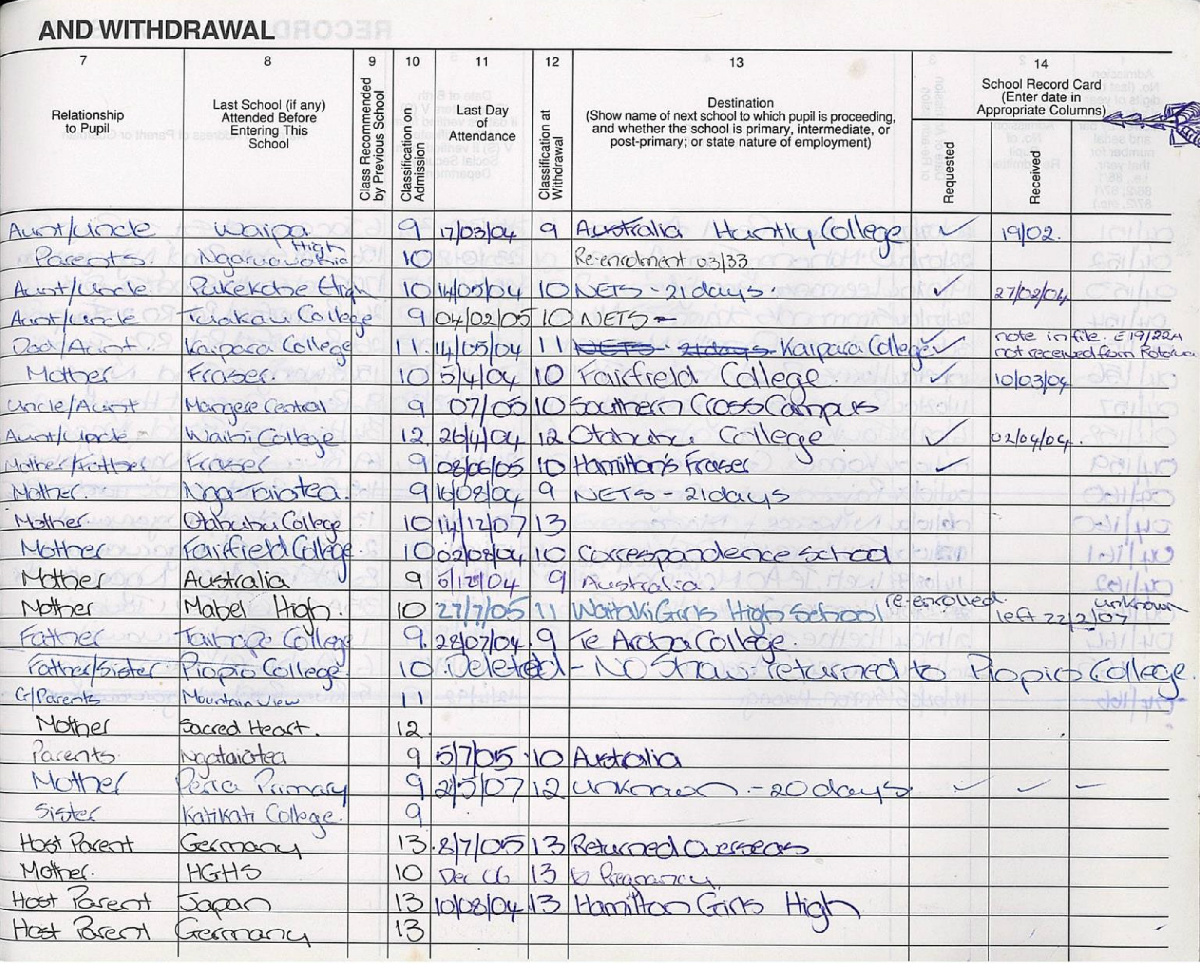 AND WITHDRAWAL
7 8 9 10 11 12 13 14
Relationship to Pupil
Last School (if any) Attended Before Entering This School
Class Recommended by Previous School
Classification on Admission
Last Day of Attendance
Classification at Withdrawal
Destination
(Show name of next school to which pupil is proceeding, and whether the school is primary, intermediate, or post-primary; or state nature of employment)
School Record Card (Enter date in Appropriate Columns)
Requested
Received
Aunt/Uncle Waipa 9 17/03/04 9 Australia Huntly College ✓ 19/02.
Parents. Ngaruawahia High 10 Re-enrolment 03/33
Aunt/Uncle Pukekohe High 10 14/05/04 10 NETS - 21 days. ✓ 27/02/04
Aunt/Uncle College 9 04/02/05 10 NETS
Dad/Aunt Kaipara College 11. 14/05/04 11 NETS - 21 days Kaipara College ✓ note in file. not received from
Mother Fraser. 10 5/4/04 10 Fairfield College. ✓ 10/03/04
Uncle/Aunt Mangere Central 9 07/05 10 Southern Cross Campus
Aunt/Uncle College 12. 26/4/04 12 Otahuhu College ✓ 02/04/04.
Mother/Father Fraser 9 08/06/05 10 Hamilton's Fraser ✓
Mother. Nga Taiatea. 9 16/08/04 9 NETS - 21 days
Mother Otahuhu College 10 14/12/07 13
Mother Fairfield College. 10 02/08/04 10 Correspondence School
Mother Australia 9 /12/04 9 Australia.
Mother Mabel High 10 27/7/05 11 Waitaki Girls High School re-enrolled. left 22/2/07 unknown
Father Taihape College 9. 28/07/04. 9 Te Aroha College.
Father/Sister Piopio College. 10. Deleted - No Show. returned to Piopio College.
Gr/Parents Mountain View 11
Mother Sacred Heart. 12.
Parents. Ngataiatea 9 5/7/05 10 Australia
Mother Peria Primary 9 2/5/07 12 unknown - 20 days. ✓ ✓ -
Sister Katikati College. 9
Host Parent Germany 13. 8/7/05 13 Returned Overseas
Mother. HGHS 10 Dec 06 13 Pregnancy
Host Parent Japan 13 10/08/04 13 Hamilton Girls High
Host Parent Germany 13